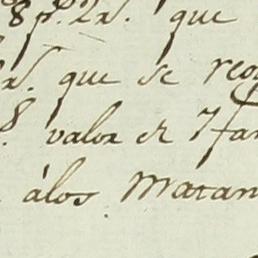 8 p.s 2 r.s que
r.s que se reco
8. valor de 7 fan
álos Matan